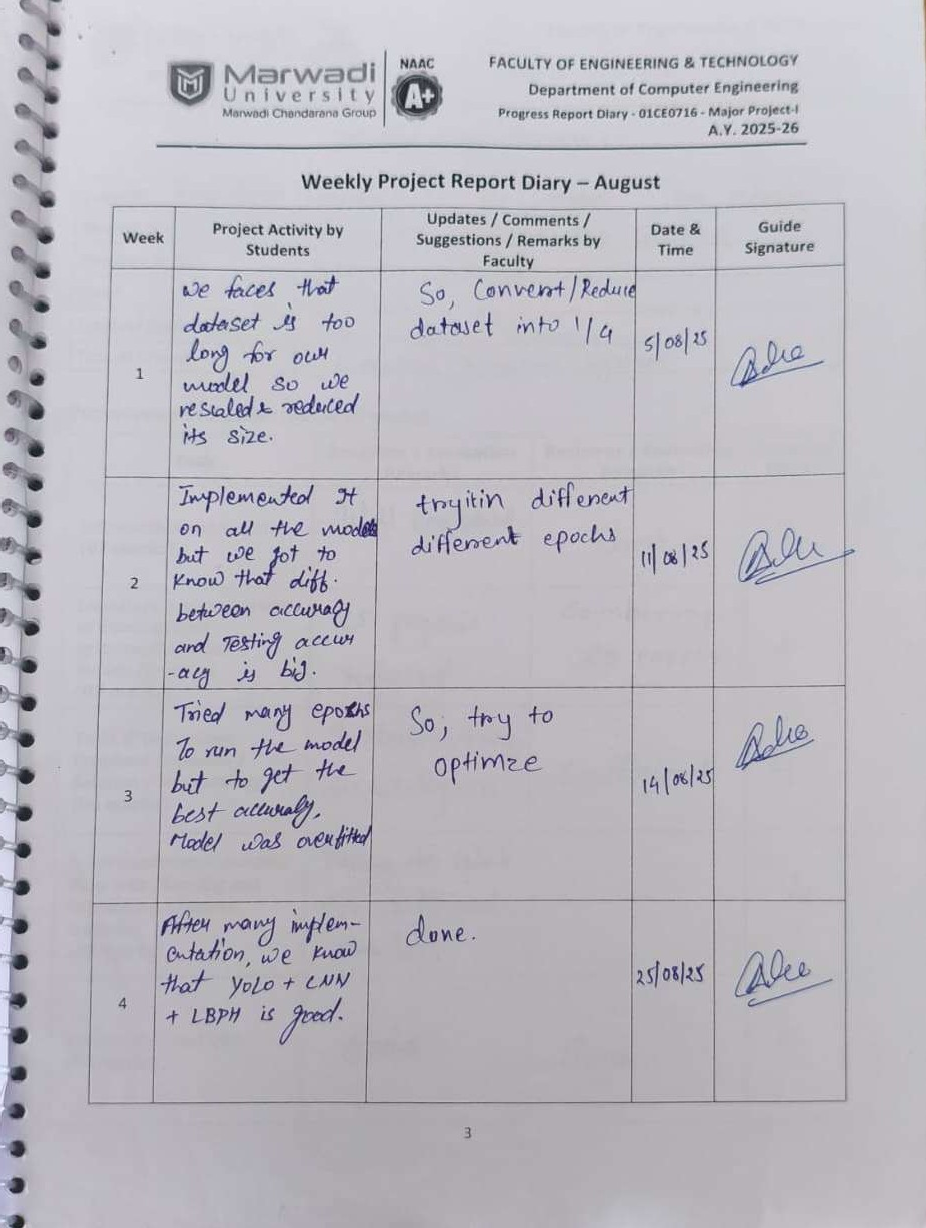 Marwadi
University
Marwadi Chandarana Group
NAAC
A+
FACULTY OF ENGINEERING & TECHNOLOGY
Department of Computer Engineering
Progress Report Diary - 01CE0716 - Major Project-I
A.Y. 2025-26
Weekly Project Report Diary – August
Week
Project Activity by
Students
Updates / Comments /
Suggestions / Remarks by
Faculty
Date &
Time
Guide
Signature
1
We faces that
dataset is too
long for our
model so we
rescaled & reduced
its size.
So, Convert/Reduce
dataset into 1/4
5/08/25
2
Implemented It
on all the models
but we got to
know that diff.
between accuracy
and Testing accur
-acy is big.
tryitin different
different epochs
11/08/25
3
Tried many epochs
To run the model
but to get the
best accuracy.
Model was overfitted
So, try to
optimze
14/08/25
4
After many implem-
entation, we know
that YOLO + CNN
+ LBPH is good.
done.
25/08/25
3